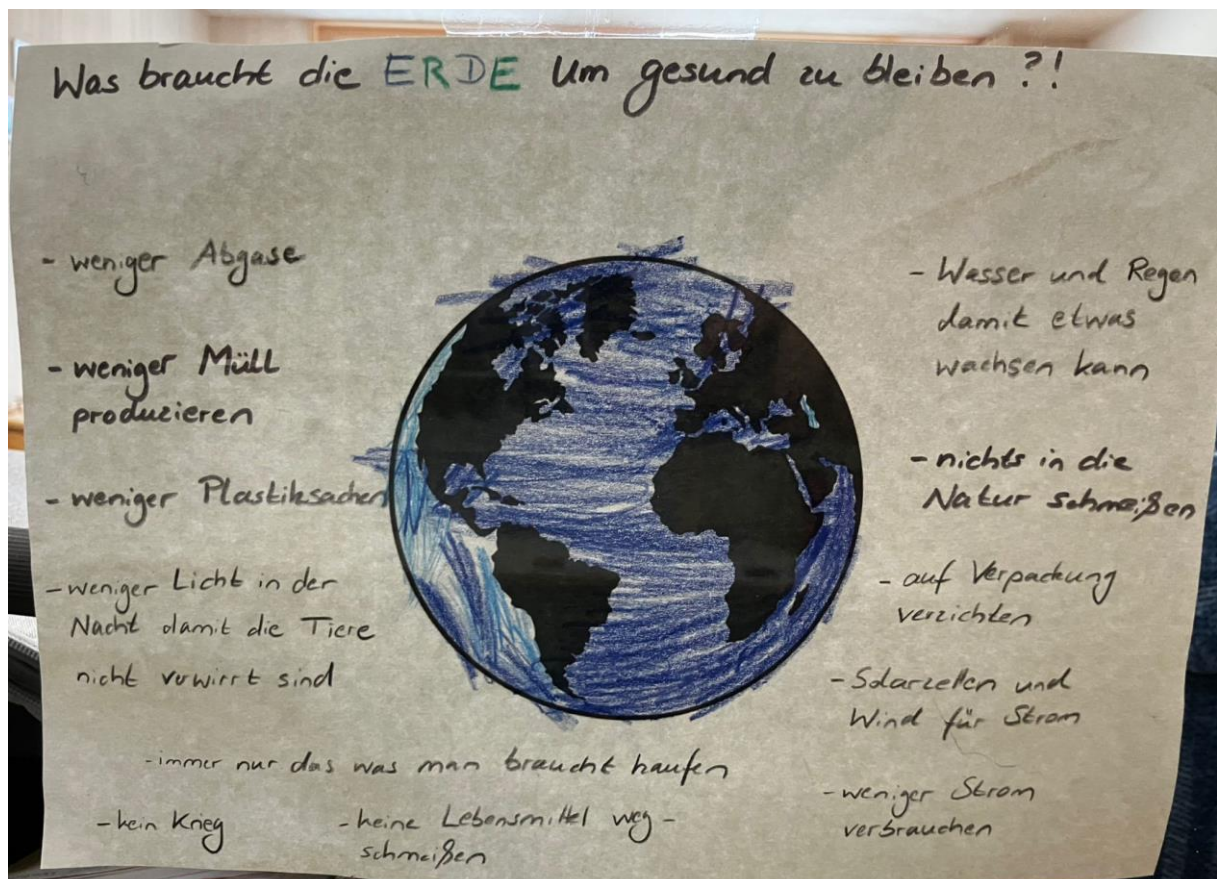 Was braucht die ERDE Um gesund zu bleiben ?!
- weniger Abgase
- weniger Müll
produzieren
- weniger Plastiksachen
- weniger Licht in der
Nacht damit die Tiere
nicht verwirrt sind
- immer nur das was man braucht kaufen
- kein Krieg
- keine Lebensmittel weg -
schmeißen
- Wasser und Regen
damit etwas
wachsen kann
- nichts in die
Natur schmeißen
- auf Verpackung
verzichten
- Solarzellen und
Wind für Strom
- weniger Strom
verbrauchen